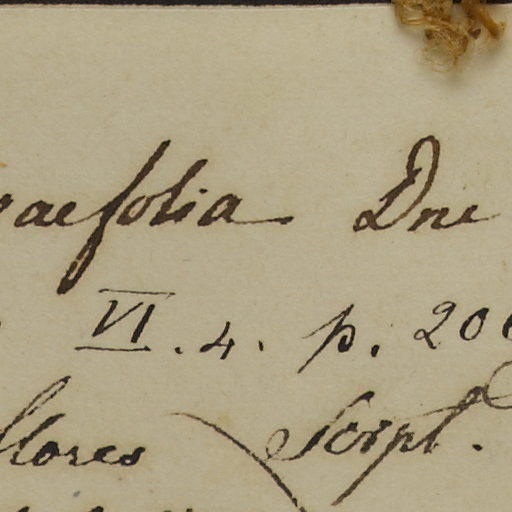 aefolia Dne
VI. 4. p. 20
flores Script.